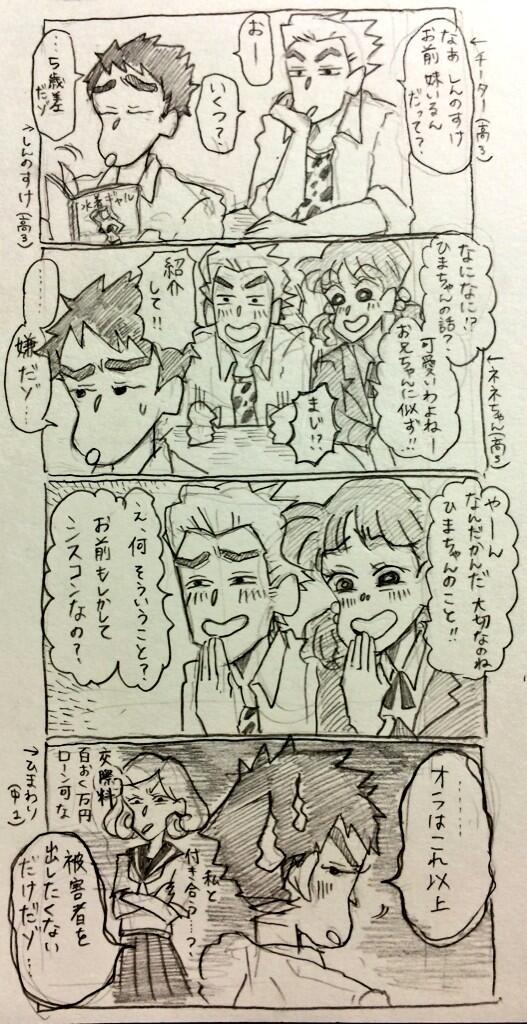 ←チーター(高3)
なあ しんのすけ
お前 妹いるん
だって?
おー
いくつ?
…5歳差
だゾ
水着ギャル
→しんのすけ(高3)
なになに!?
ひまちゃんの話?
←ネネちゃん(高3)
可愛いわよねー
お兄ちゃんに似ず!!
まじ!?
紹介
して!!
………
嫌だゾ…
やーん
なんだかんだ 大切なのね
ひまちゃんのこと!!
え、何そういうこと?
お前もしかして
シスコンなの?
………
オラはこれ以上
私と
付き合う…?
交際料
百おく万円
ローン可な
→ひまわり(中1)
被害者を
出したくない
だけだゾ…